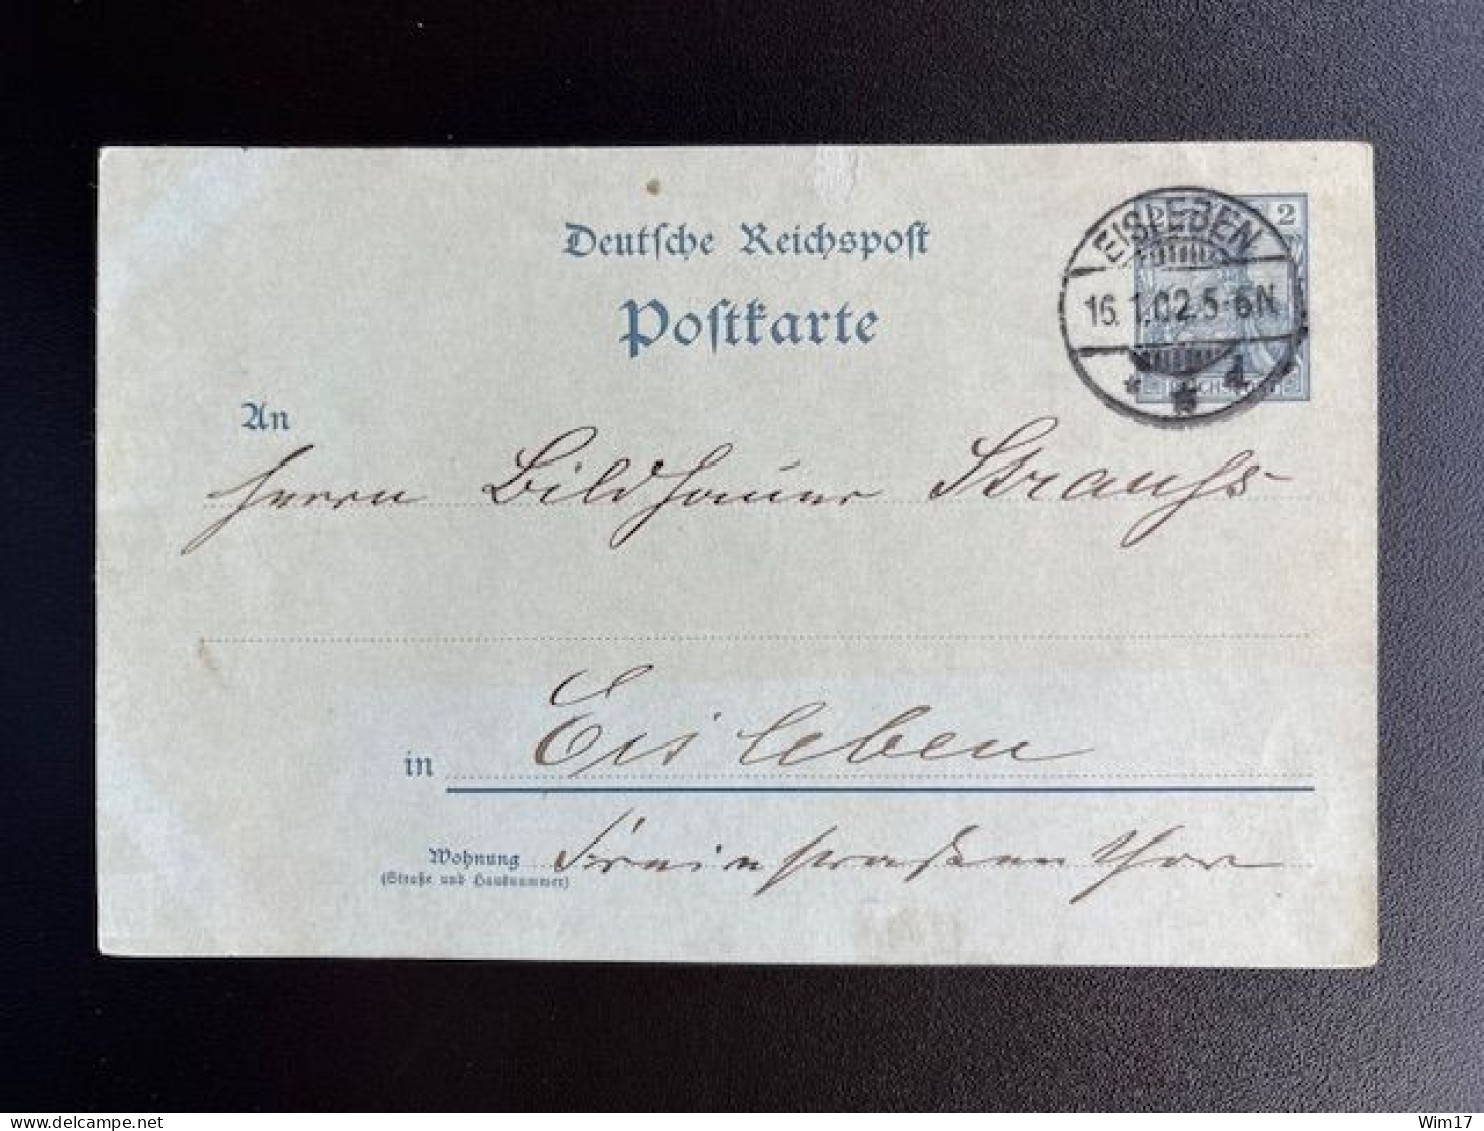 Deutsche Reichspost
Postkarte
2 2
EISLEBEN
16.1.02.5-6N
* * d
REICHSPOST
An
Herrn Bildhauer Strauß
in Eisleben
Wohnung
(Straße und Hausnummer)
Wim17